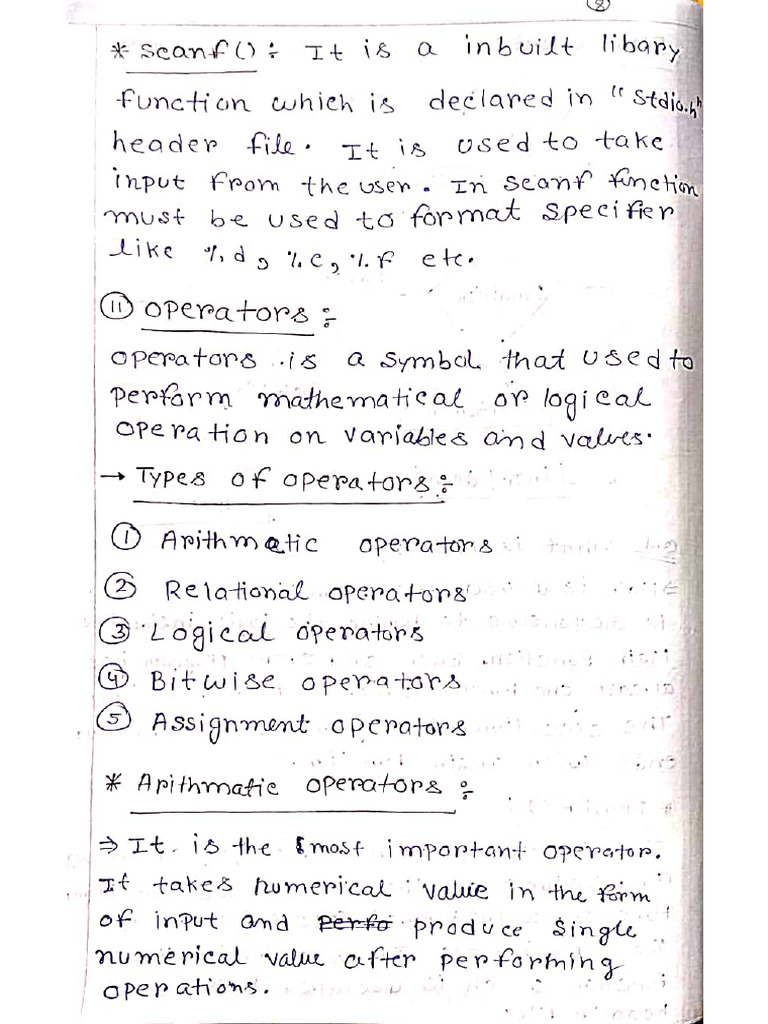 8
* Scanf() ÷ It is a inbuilt libary
function which is declared in "Stdio.h"
header file. It is used to take
input from the user. In scanf function
must be used to format specifier
like %d, %c, %f etc.
11 Operators ÷
Operators is a symbol that used to
perform mathematical or logical
operation on variables and values.
→ Types of operators ÷
1 Arithmetic operators
2 Relational operators
3 Logical operators
4 Bitwise operators
5 Assignment operators
* Arithmatic operators ÷
⇒ It is the most important operator.
It takes numerical value in the form
of input and perfo produce single
numerical value after performing
operations.